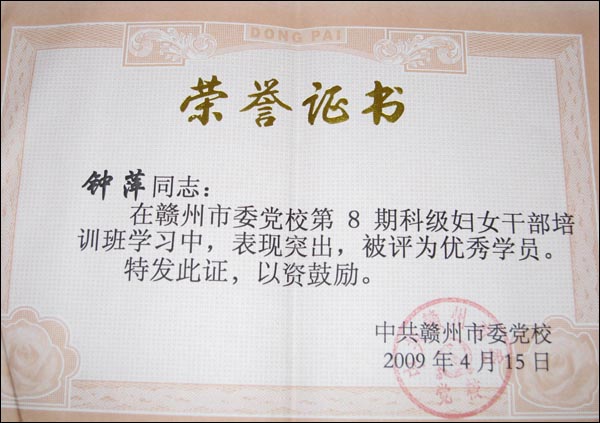 DONG PAI
荣誉证书
钟萍同志：
在赣州市委党校第 8 期科级妇女干部培
训班学习中，表现突出，被评为优秀学员。
特发此证，以资鼓励。
中共赣州市委党校
2009 年 4 月 15 日